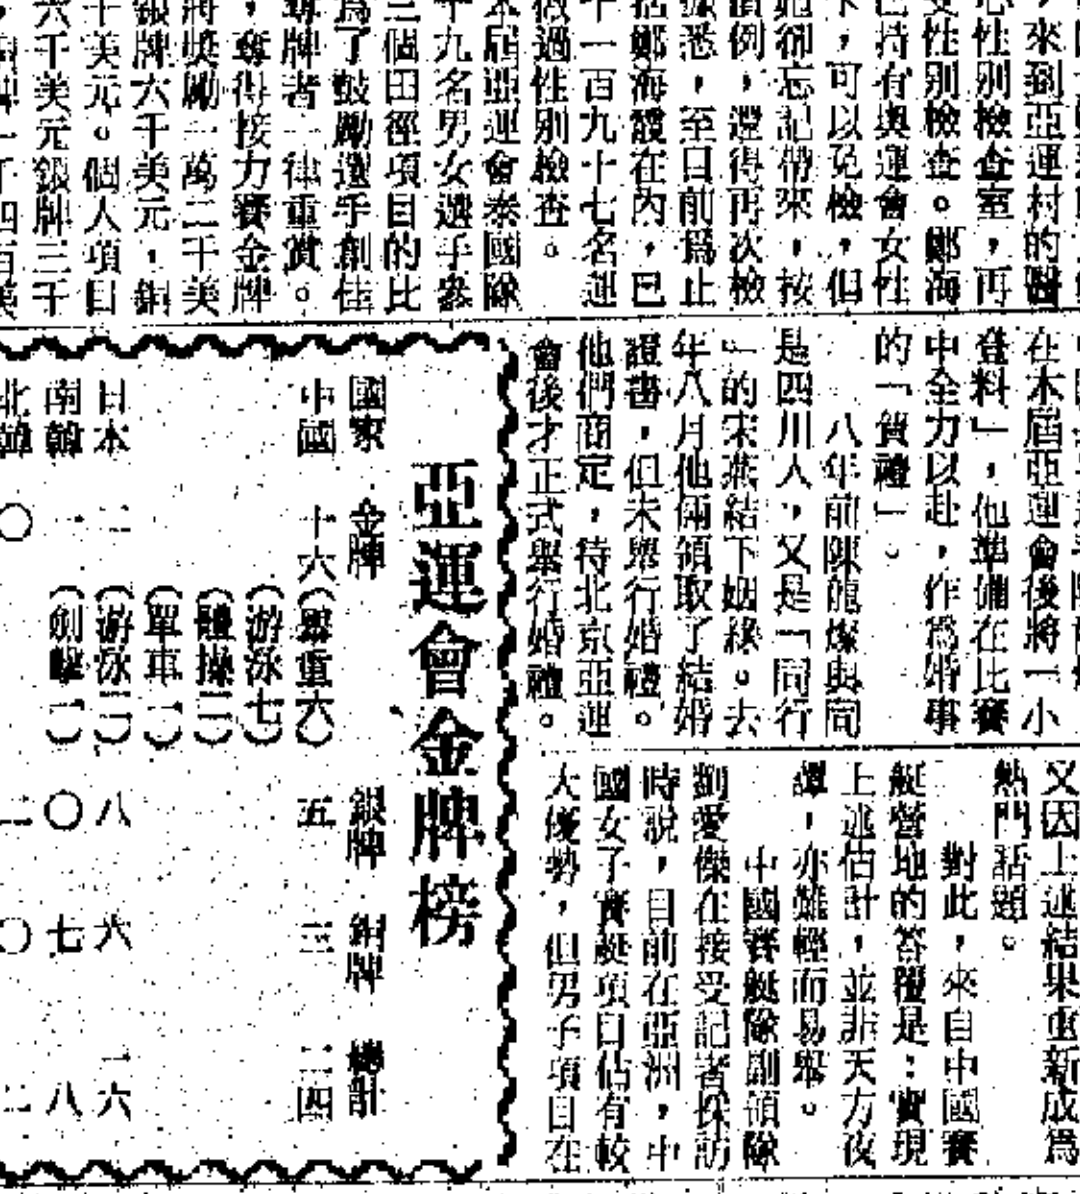 ，來到亞運村的醫
心性別檢查室，再
受性別檢查。鄭海
已持有奧運會女性
卡，可以免檢，但
她卻忘記帶來，按
慣例，還得再次檢
據悉，至目前爲止
括鄭海霞在內，已
十一百九十七名運
做過性別檢查。
本屆亞運會泰國隊
十九名男女選手參
三個田徑項目的比
爲了鼓勵選手創佳
奪牌者一律重賞。
，奪得接力賽金牌
將獎勵一萬二千美
銀牌六千美元，銅
十美元。個人項目
六千美元銀牌三千
牌一千四百美
在本屆亞運會後將一小
登料」，他準備在比賽
中全力以赴，作爲婚事
的「賀禮」。
八年前陳龍燦與同
是四川人，又是「同行
」的宋燕結下姻緣。去
年八月他倆領取了結婚
證書，但未舉行婚禮。
他們商定，待北京亞運
會後才正式舉行婚禮。
又因上述結果重新成爲
熱門話題。
對此，來自中國賽
艇營地的答覆是：實現
上述估計，並非天方夜
譚，亦難輕而易舉。
中國賽艇隊副領隊
劉愛傑在接受記者採訪
時說，目前在亞洲，中
國女子賽艇項目佔有較
大優勢，但男子項目在
亞運會金牌榜
國家 金牌 銀牌 銅牌 總計
中國 十六（舉重六） 五 三 二四
（游泳七）
（體操二）
（單車一）
日本 二（游泳二） 八 六 一六
南韓 一（劍擊一） 〇 七 八
北韓 〇 二 〇 二